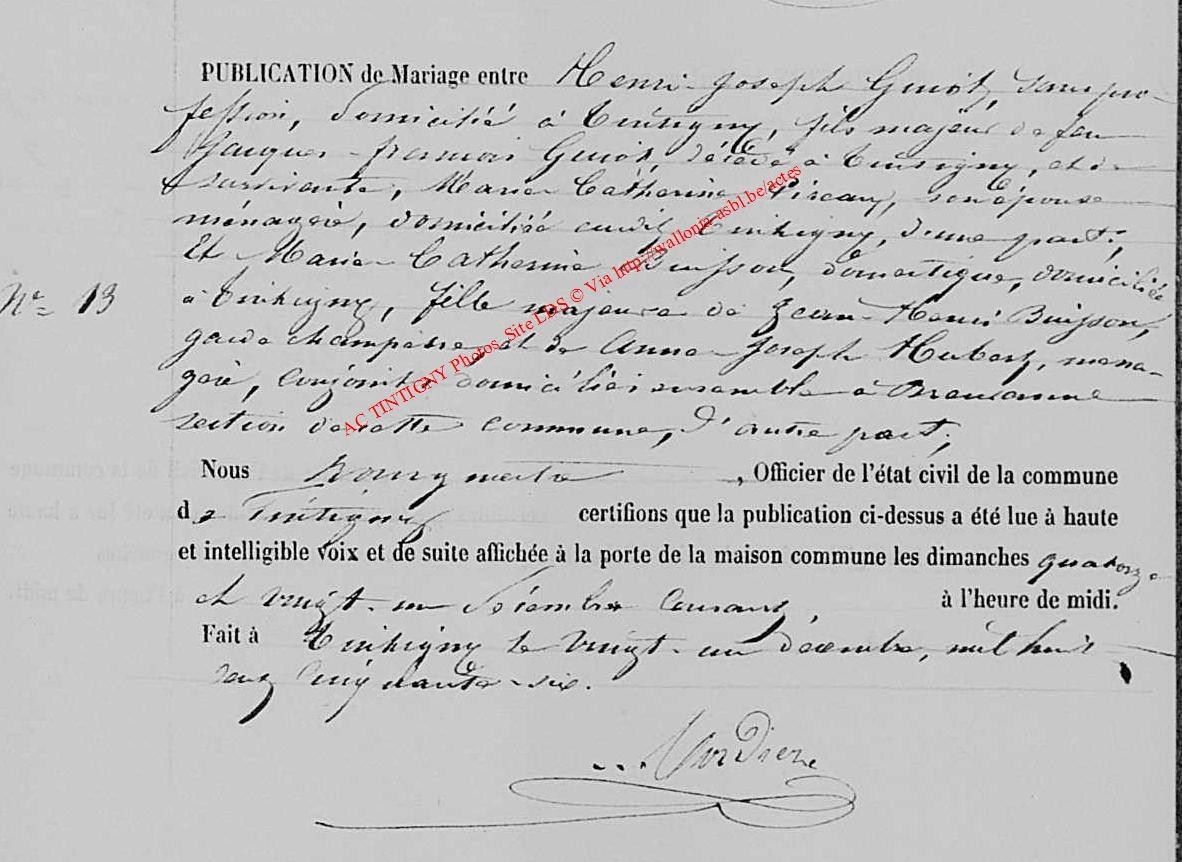 PUBLICATION de Mariage entre Henri-Joseph Guiot, sans pro-
fession, domicilié à Tintigny, fils majeur de feu
Jacques-françois Guiot, décédé à Tintigny, et de
survivante, Marie Catherine son épouse
ménagère, domiciliée audit Tintigny, d'une part;
Et Marie Catherine Buisson, domestique, domiciliée
N° 13
à Tintigny, fille majeure de Jean-Henri Buisson,
garde champêtre et de Anne-Joseph Hubert, ména-
gère, conjoints domiciliés ensemble à
section de cette commune, d'autre part;
Nous Bourgmestre, Officier de l'état civil de la commune
de Tintigny certifions que la publication ci-dessus a été lue à haute
et intelligible voix et de suite affichée à la porte de la maison commune les dimanches quatorze
et vingt-un Décembre courant, à l'heure de midi.
Fait à Tintigny le vingt-un décembre, mil huit
cent cinquante-six.
AC TINTIGNY Photos. Site LDS © Via http://wallonia-asbl.be/actes